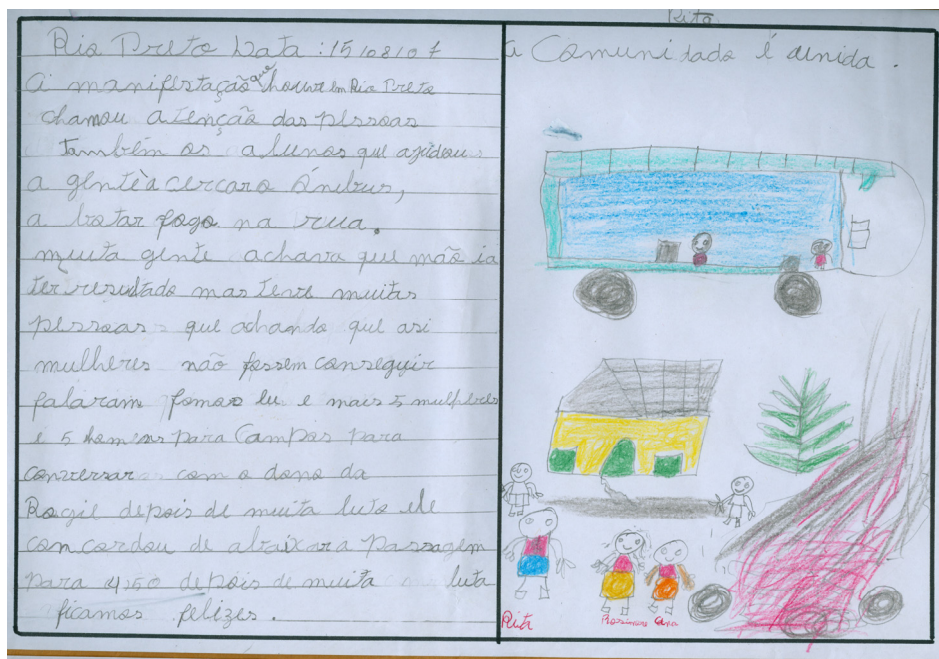 Rita
Rio Preto Data : 15/08/07
a manifestação que houve em Rio Preto
chamou atenção das pessoas
também os alunos que ajudou
a gente à cercar o ônibus,
a botar fogo na rua.
muita gente achava que não ia
ter resultado mas teve muitas
pessoas que achando que asi
mulheres não fossem conseguir
falaram fomos Eu e mais 5 mulheres
e 5 homens para Campos para
conversar com o dono da
Rogil depois de muita luta ele
concordou de abaixar a passagem
para 4,50 depois de muita luta
ficamos felizes.
a Comunidade é unida.
Rita Rosimara ana